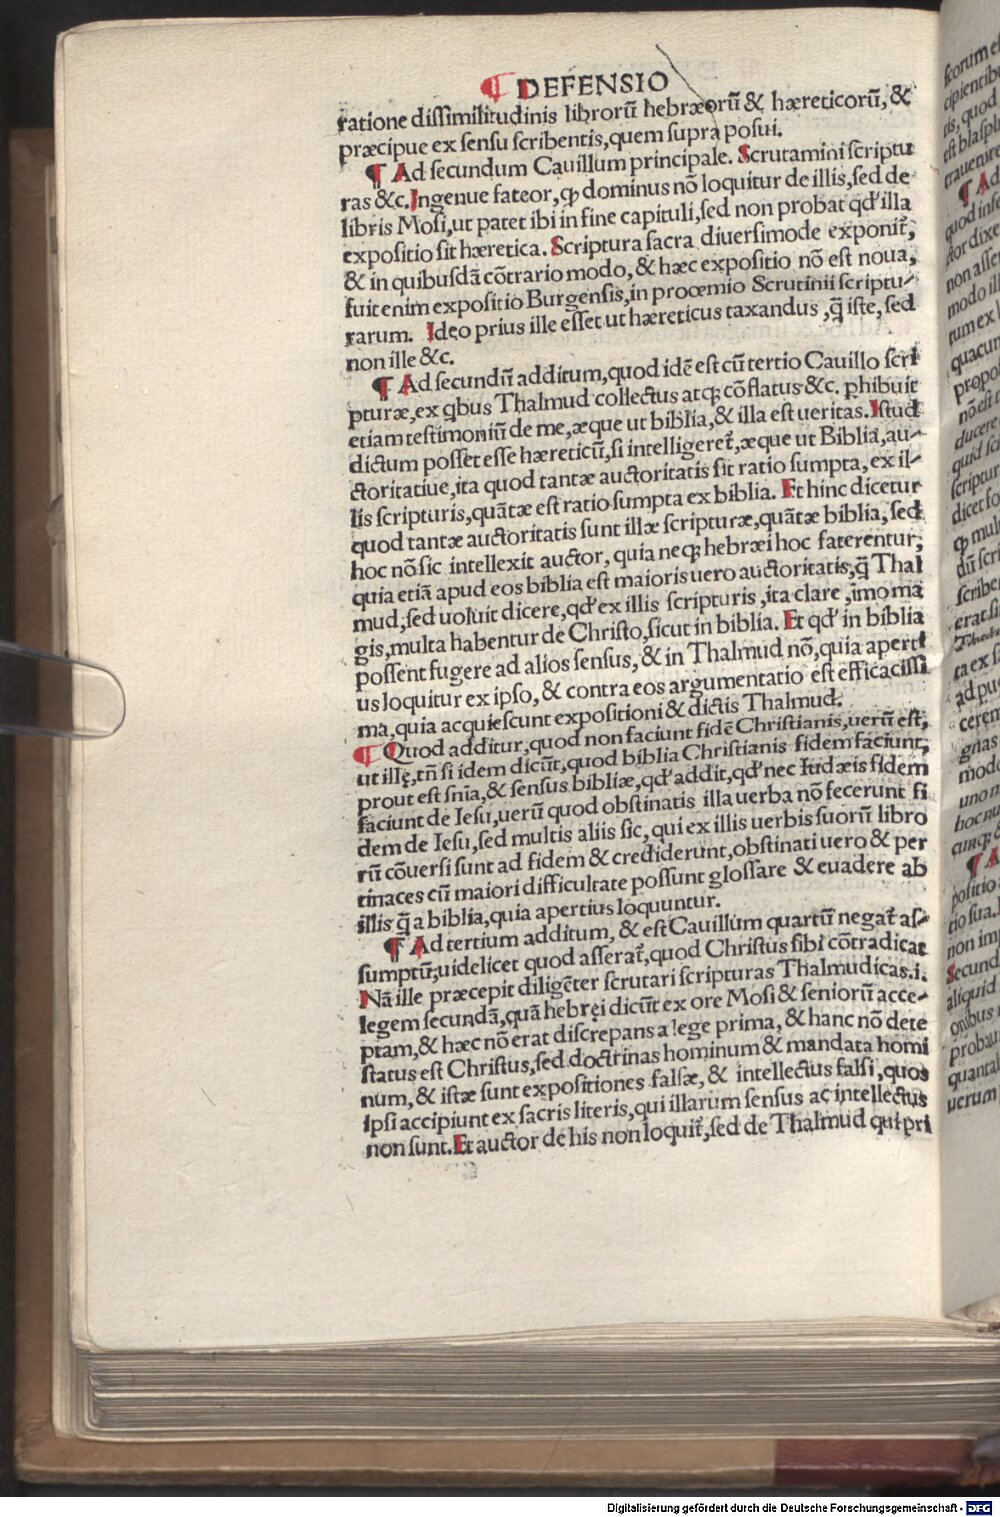 ¶ DEFENSIO
ratione dissimilitudinis librorũ hebræorũ & hæreticorũ, &
præcipue ex sensu scribentis, quem supra posui.
¶ Ad secundum Cauillum principale. Scrutamini scriptu
ras &c. Ingenue fateor, ꝙ dominus nõ loquitur de illis, sed de
libris Mosi, ut patet ibi in fine capituli, sed non probat qđ illa
expositio sit hæretica. Scriptura sacra diuersimode exponit̃,
& in quibusdã cõtrario modo, & hæc expositio nõ est noua,
fuit enim expositio Burgensis, in proœmio Scrutinii scriptu-
rarum. Ideo prius ille esset ut hæreticus taxandus, q̃ iste, sed
non ille &c.
¶ Ad secundũ additum, quod idẽ est cũ tertio Cauillo scri
pturæ, ex qbus Thalmud collectus atqꝫ cõflatus &c. phibuit
etiam testimoniũ de me, æque ut biblia, & illa est ueritas. Istud
dictum posset esse hæreticũ, si intelligeret̃, æque ut Biblia, au-
ctoritatiue, ita quod tantæ auctoritatis sit ratio sumpta, ex il-
lis scripturis, quãtæ est ratio sumpta ex biblia. Et hinc dicetur
quod tantæ auctoritatis sunt illæ scripturæ, quãtæ biblia, sed
hoc nõ sic intellexit auctor, quia neqꝫ hebræi hoc faterentur,
quia etiã apud eos biblia est maioris uero auctoritatis, q̃ Thal
mud, sed uoluit dicere, qđ ex illis scripturis, ita clare, imo ma
gis, multa habentur de Christo, sicut in biblia. Et qđ in biblia
possent fugere ad alios sensus, & in Thalmud nõ, quia aperti
us loquitur ex ipso, & contra eos argumentatio est efficacissi
ma, quia acquiescunt expositioni & dictis Thalmud.
¶ Quod additur, quod non faciunt fidẽ Christianis, uerũ est,
ut illę, tñ si idem dicũt, quod biblia Christianis fidem faciunt,
prout est snĩa, & sensus bibliæ, qđ addit, qđ nec Iudæis fidem
faciunt de Iesu, uerũ quod obstinatis illa uerba nõ fecerunt fi
dem de Iesu, sed multis aliis sic, qui ex illis uerbis suorũ libro
rũ cõuersi sunt ad fidem & crediderunt, obstinati uero & per
tinaces cũ maiori difficultate possunt glossare & euadere ab
illis q̃ a biblia, quia apertius loquuntur.
¶ Ad tertium additum, & est Cauillum quartũ negat̃ as-
sumptũ, uidelicet quod asserat̃, quod Christus sibi cõtradicat
Nã ille præcepit diligẽter scrutari scripturas Thalmudicas .i.
legem secundã, quã hebręi dicũt ex ore Mosi & seniorũ acce-
ptam, & hæc nõ erat discrepans a lege prima, & hanc nõ dete
status est Christus, sed doctrinas hominum & mandata homi
num, & istæ sunt expositiones falsæ, & intellectus falsi, quos
ipsi accipiunt ex sacris literis, qui illarum sensus ac intellectus
non sunt. Et auctor de his non loquit̃, sed de Thalmud qui pri
Digitalisierung gefördert durch die Deutsche Forschungsgemeinschaft - DFG